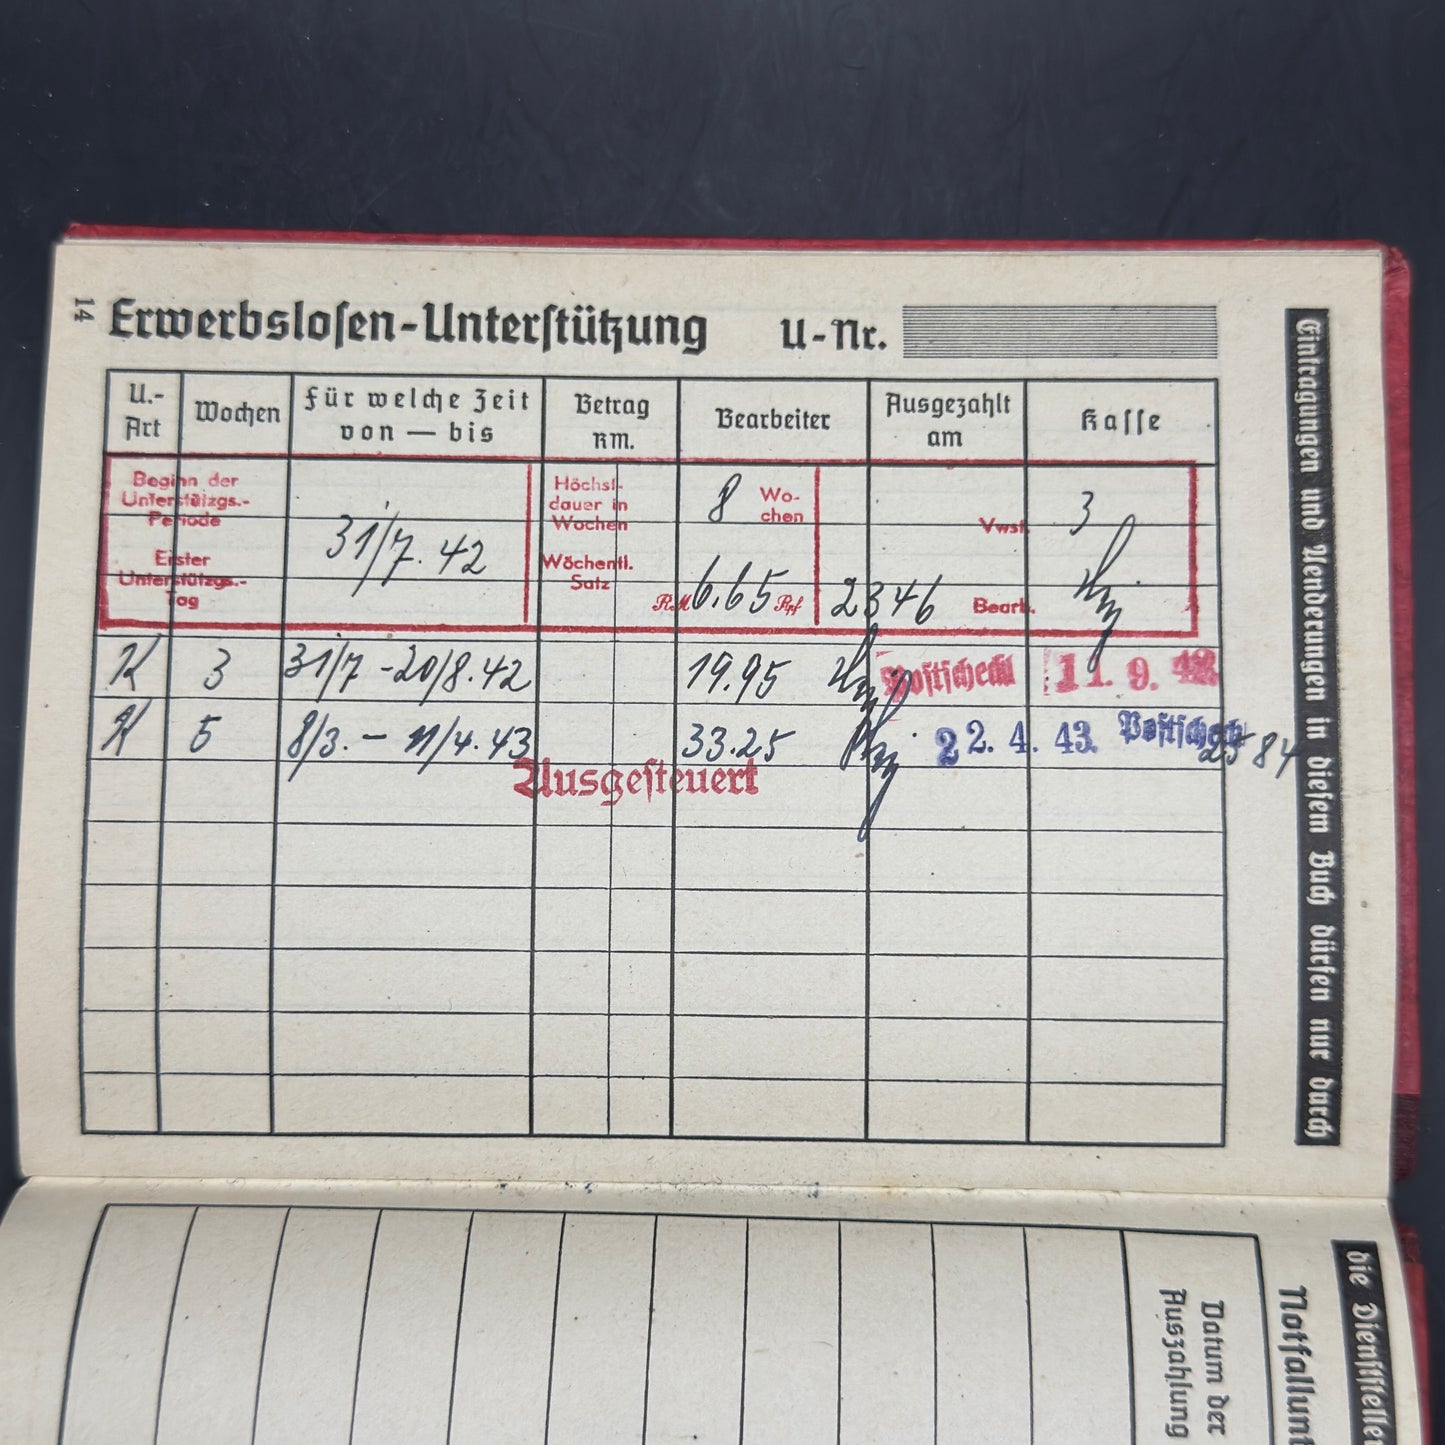 14
Erwerbslosen-Unterstützung U-Nr.
U.-Art Wochen Für welche Zeit von — bis Betrag RM. Bearbeiter Ausgezahlt am Kasse
Beginn der Unterstützgs.-Periode
Erster Unterstützgs.-Tag
31/7. 42
Höchstdauer in Wochen 8 Wochen
Wöchentl. Satz RM 6.65 Rpf
2346
Vwst. 3
Bearb.
K 3 31/7 - 20/8. 42 19.95 Postscheck 11. 9. 42
K 5 8/3. - 11/4. 43 33.25 22. 4. 43. Postscheck 2584
Ausgesteuert
Eintragungen und Aenderungen in diesem Buch dürfen nur durch
Datum der
Auszahlung
die